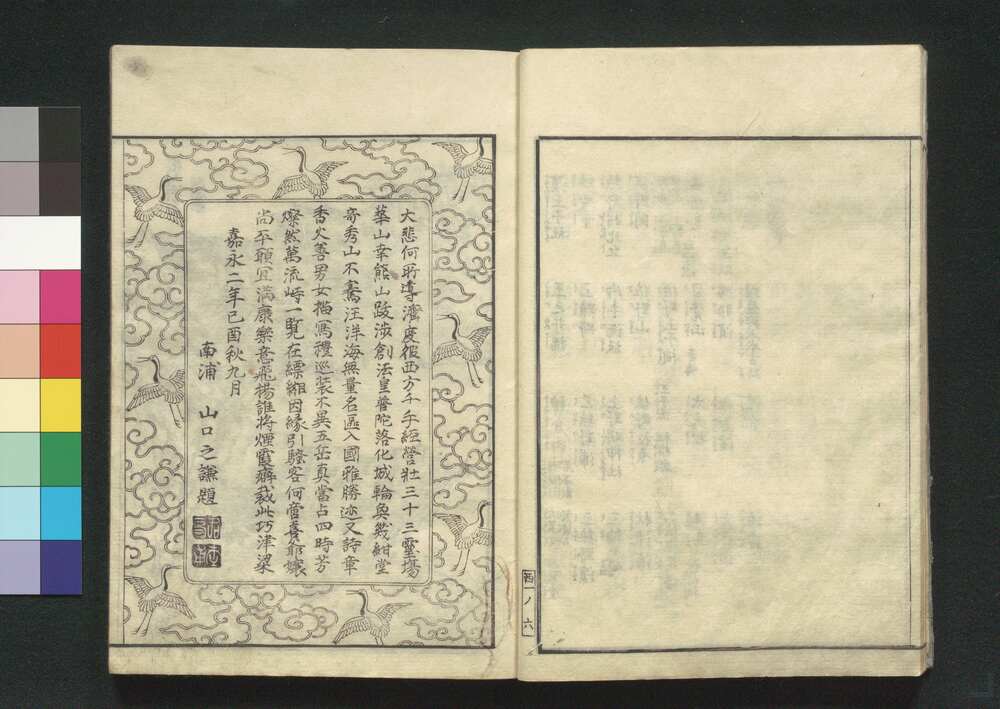 大悲何所導濟度假西方千手經營壯三十三靈場
華山幸熊山跋渉創法皇普陀落化城輪奐幾紺堂
奇秀山不騫汪洋海無量名區入國雅勝迹又詩章
香火善男女描寫禮巡裝不異五岳真當占四時芳
燦然萬流峙一覧在縹緗因縁引騷客何啻養爺孃
尚平願宜滿康樂意飛揚誰將煙霞癖裁此巧津梁
嘉永二年己酉秋九月
南浦 山口之謙題
西ノ六